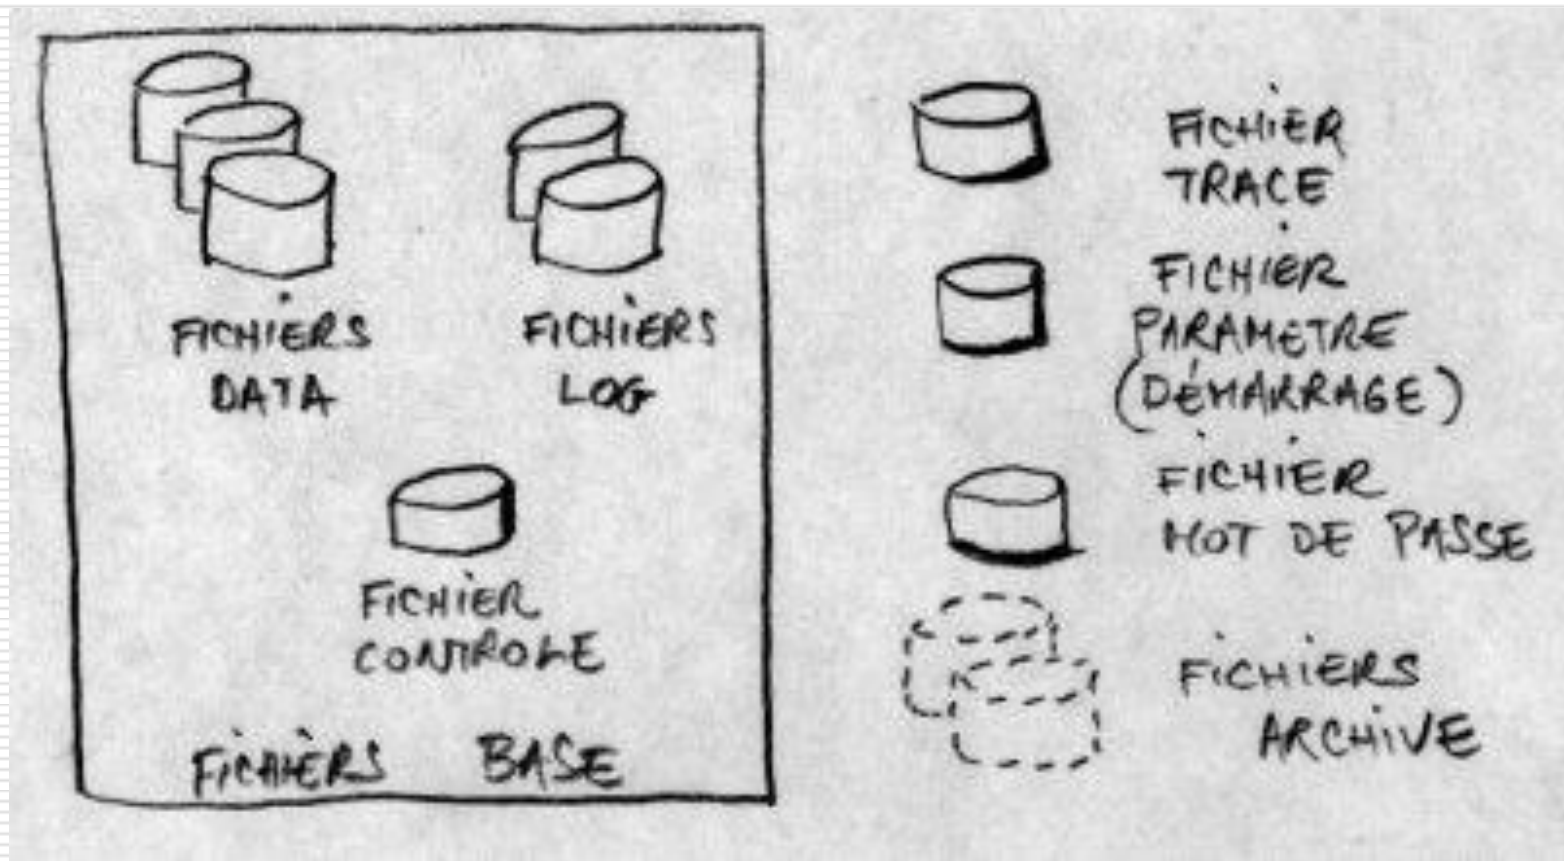 FICHIERS
DATA
FICHIERS
LOG
FICHIER
CONTROLE
FICHIERS BASE
FICHIER
TRACE
FICHIER
PARAMETRE
(DÉMARRAGE)
FICHIER
MOT DE PASSE
FICHIERS
ARCHIVE